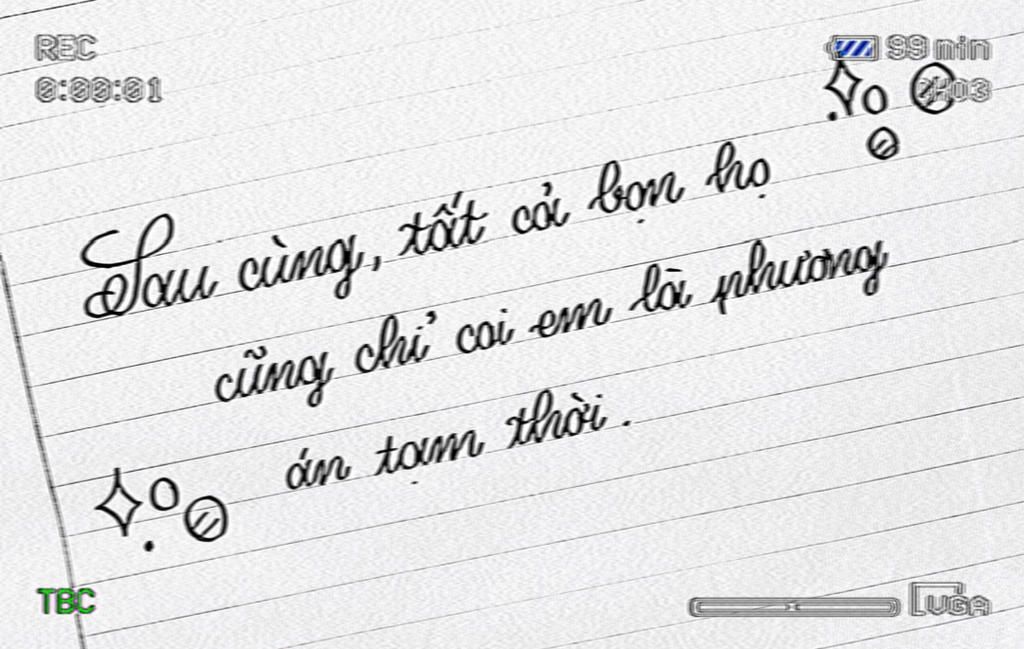 REC
99 min
0:00:01
Sau cùng, tất cả bọn họ
cũng chỉ coi em là phương
án tạm thời.
TBC
VGA